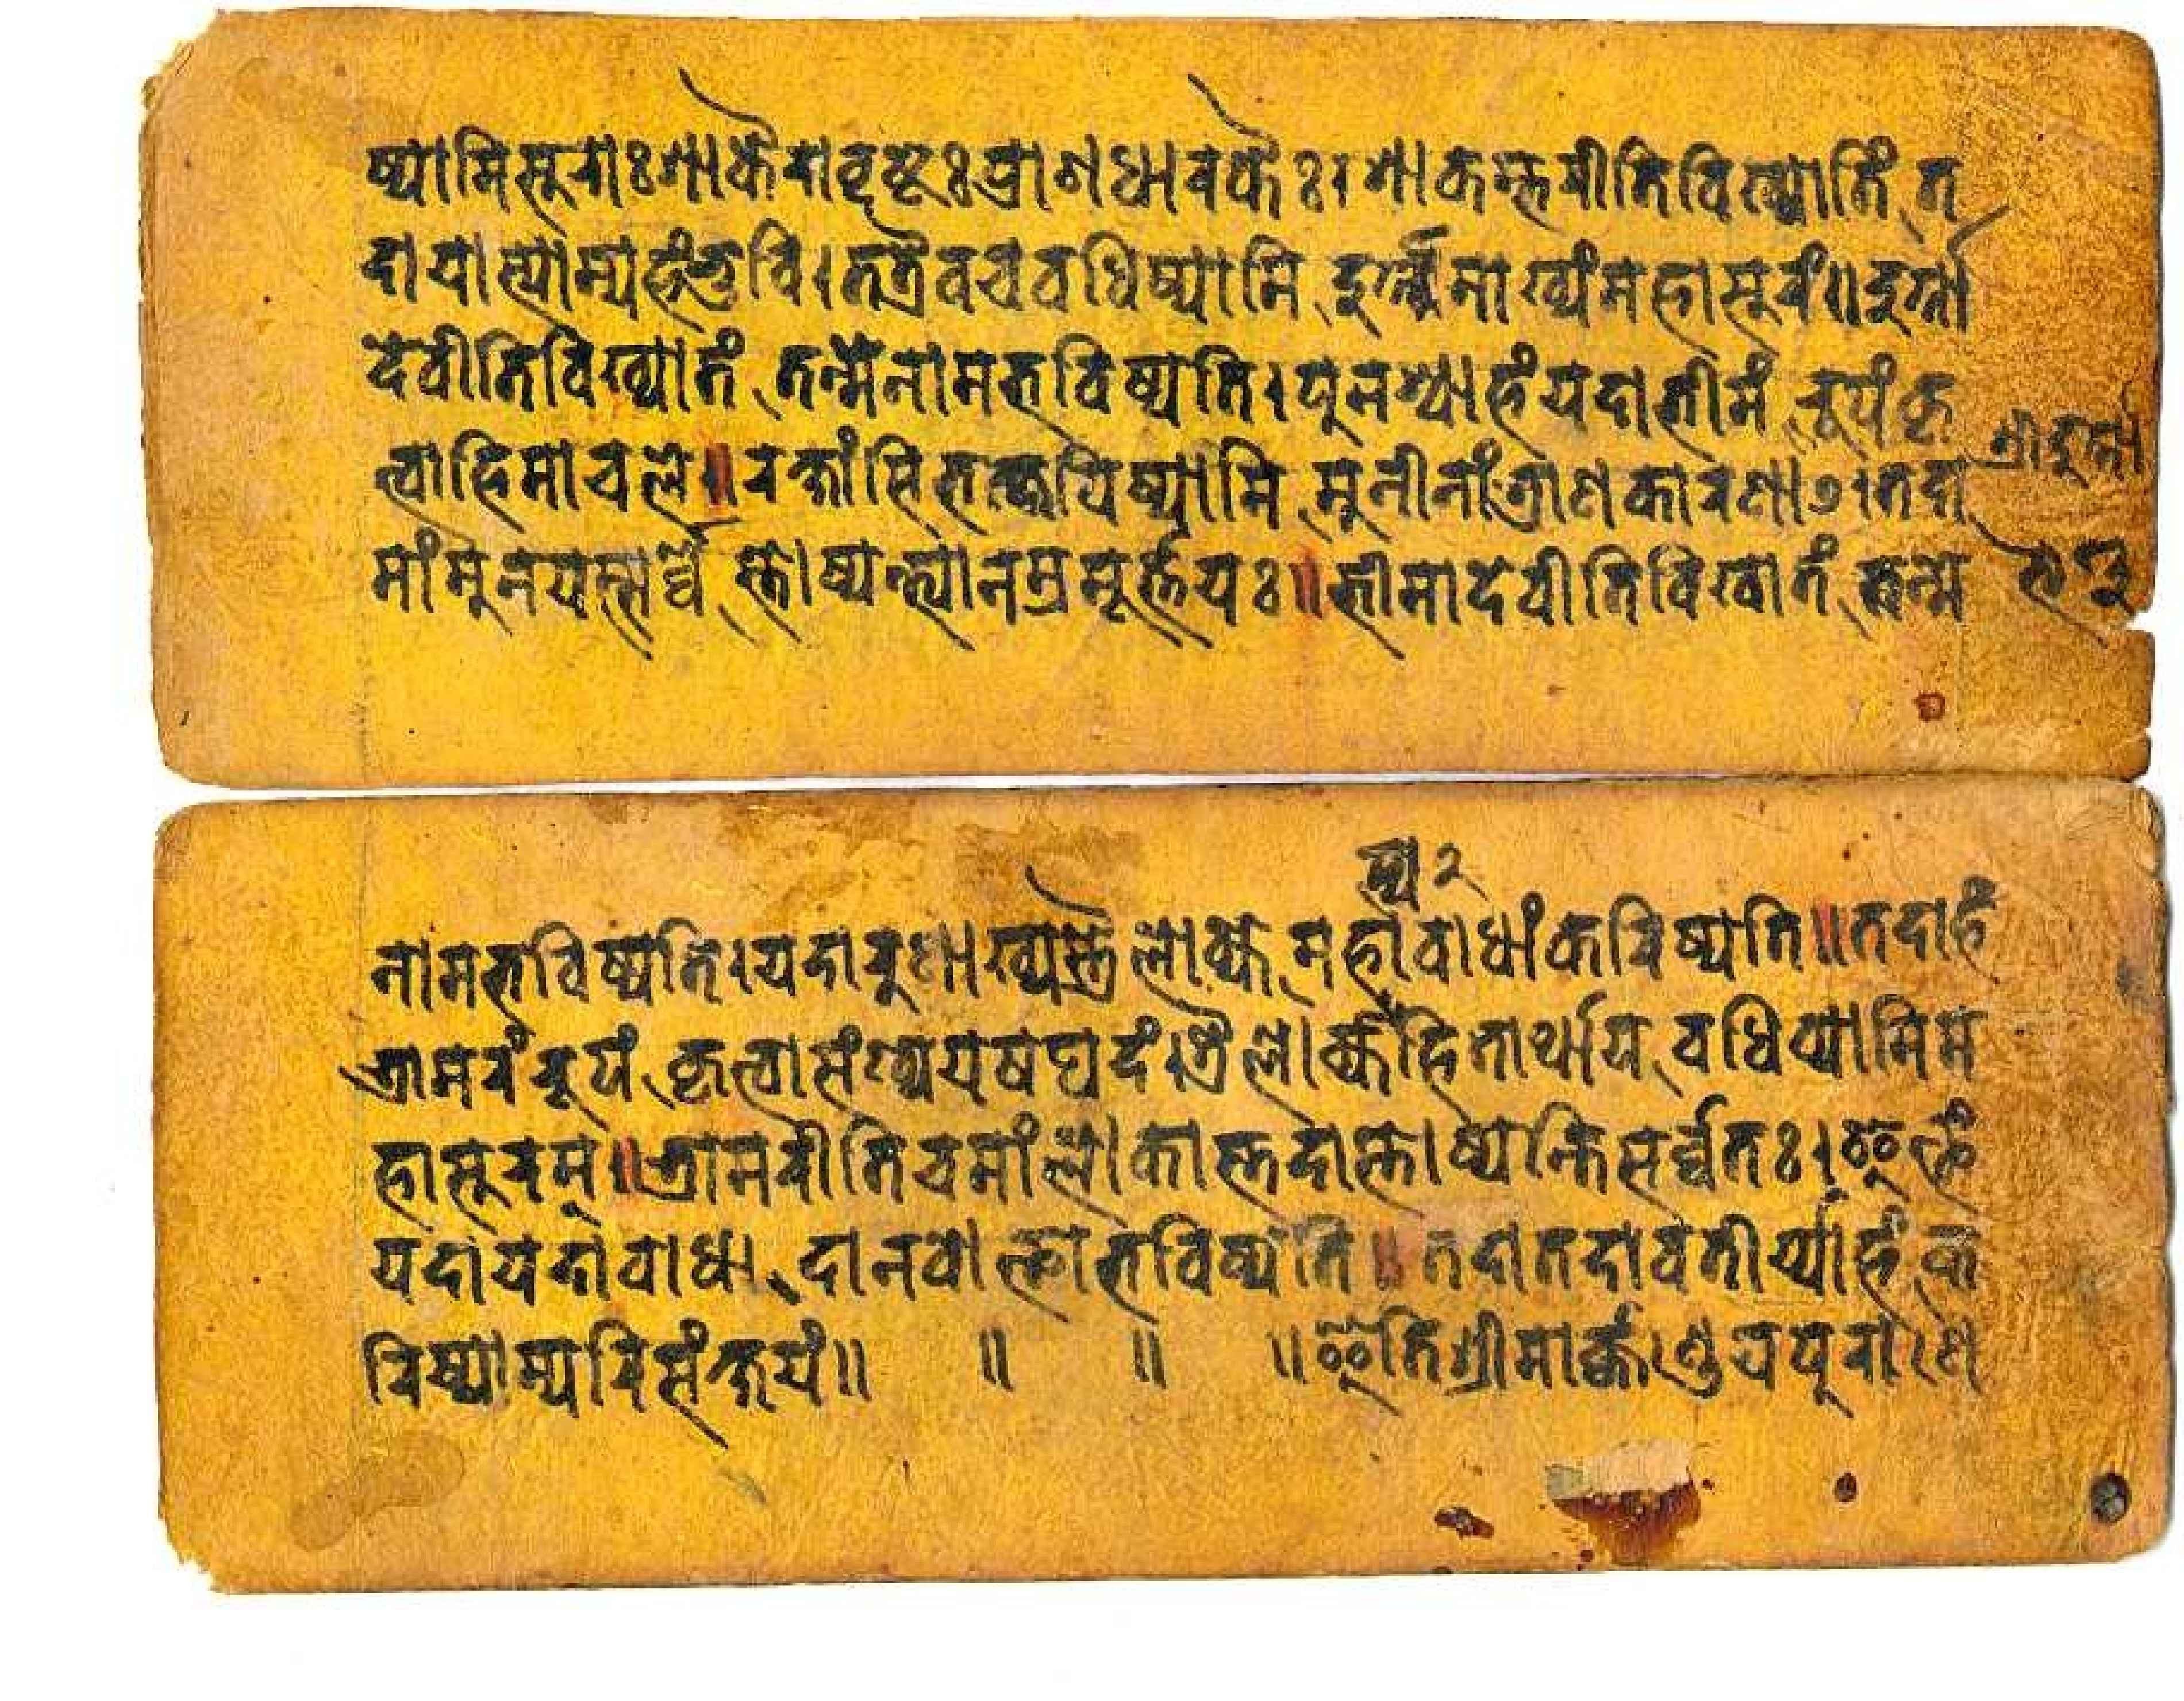 ष्यामिसुराःशाकैरावृष्टःप्राणधारकैः।शाकम्भरीतिविख्यातिं त
दायास्याम्यहंभुवि।तत्रैवचवधिष्यामि दुर्ग्गमाख्यंमहासुरं॥दुर्ग्गा
देवीतिविख्यातं तन्मेनामभविष्यति।पुनश्चाहंयदाभीमं रूपंकृ
त्वाहिमाचले॥रक्षांसिभक्षयिष्यामि मुनीनांत्राणकारणात्।तदा
श्रीदुर्गा
मांमुनयस्सर्व्वे स्तोष्यन्त्यानम्रमूर्त्तयः॥भीमादेवीतिविख्यातं तन्मे
नामभविष्यति।यदारुणाख्यस्त्रैलोक्ये महाबाधांकरिष्यति॥तदाहं
भ्रामरंरूपं कृत्वासंख्येयषट्पदं।त्रैलोक्यहितार्थाय वधिष्यामिम
हासुरम्॥भ्रामरीतिचमांलोकास्तदास्तोष्यन्तिसर्व्वतः।इत्थं
यदायदाबाधा दानवोत्थाभविष्यति॥तदातदावतीर्य्याहं क
रिष्याम्यरिसंक्षयं॥ ॥ ॥ ॥इतिश्रीमार्क्कण्डेयपुराणे